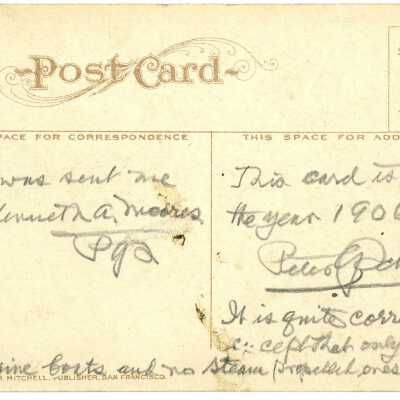 Post Card
PACE FOR CORRESPONDENCE
THIS SPACE FOR ADD
was sent me
enneth A. Moores
This card is
the year 1906
It is quite corr
only
ine boats and no steam propelled ones
MITCHELL, PUBLISHER, SAN FRANCISCO.